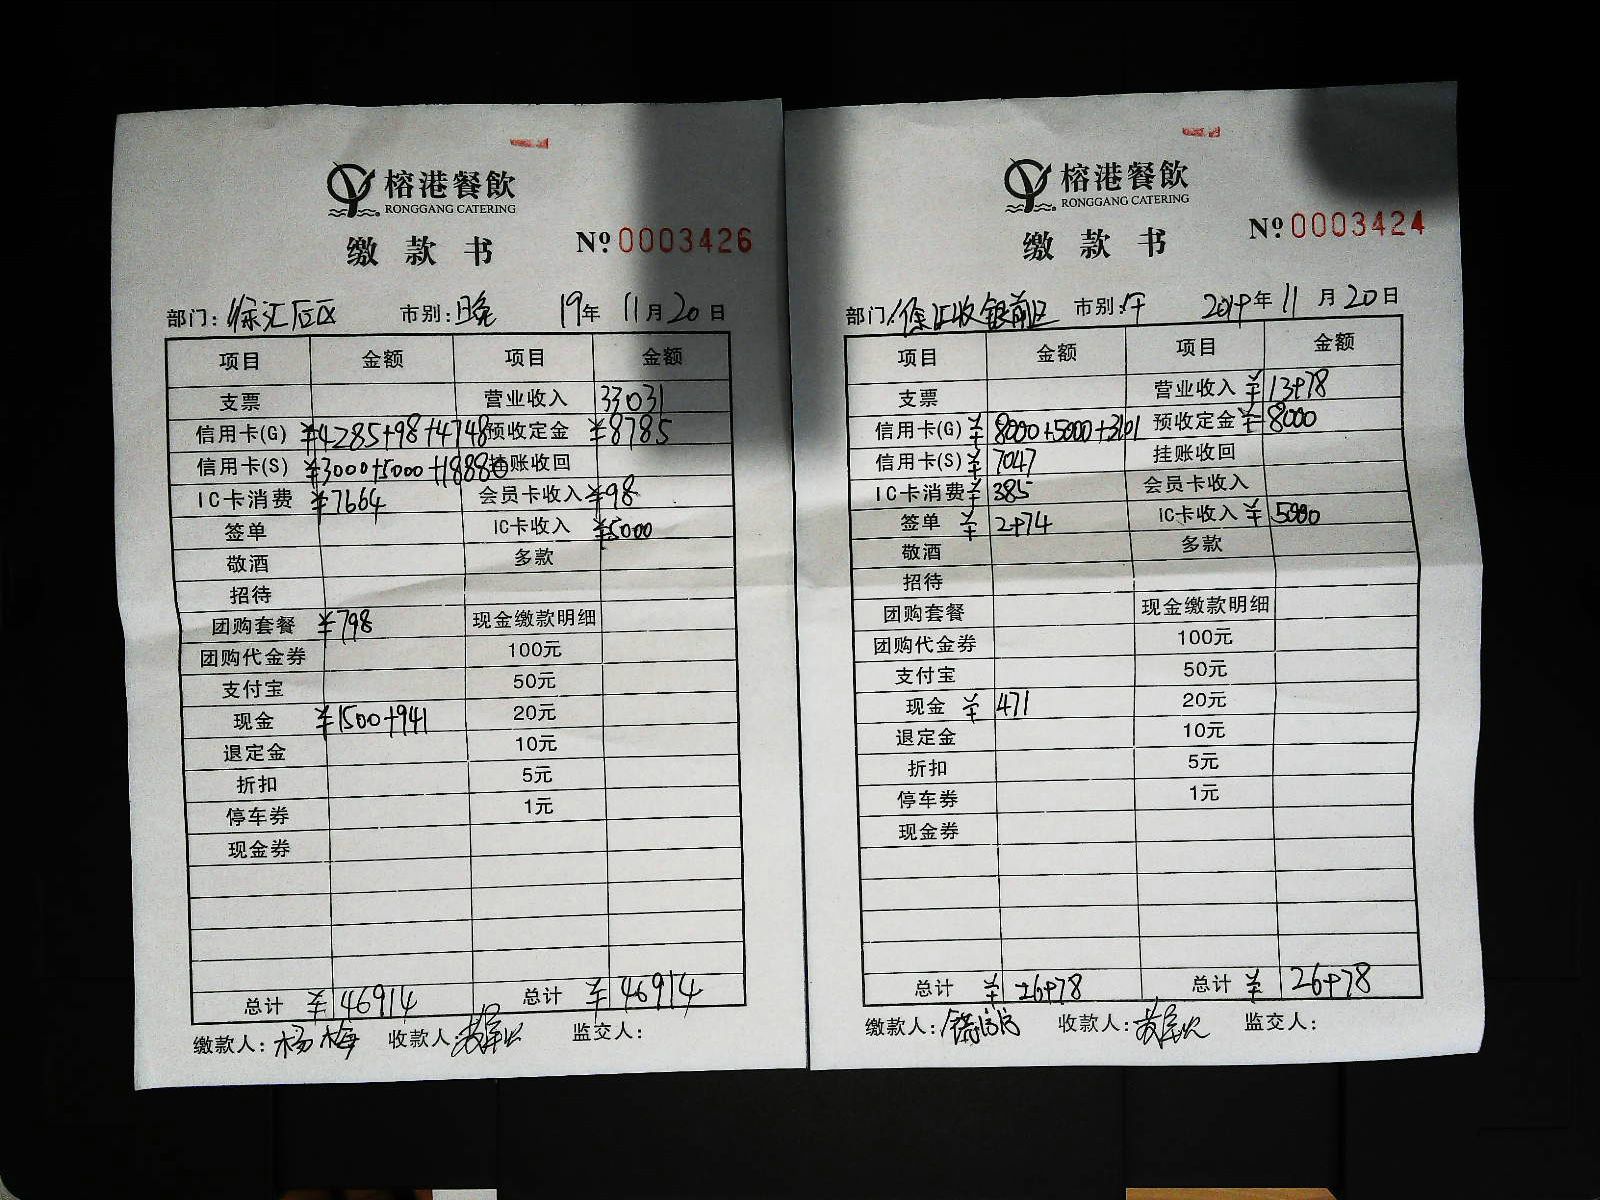 榕港餐飲
RONGGANG CATERING
缴款书 Nº 0003426
部门: 徐汇后区 市别: 晚 19年 11月20日
项目 金额 项目 金额
支票 营业收入 33031
信用卡(G) ¥4285+98+4748 预收定金 ¥8785
信用卡(S) ¥3000+5000+18880 挂账收回
IC卡消费 ¥7664 会员卡收入 ¥98
签单 IC卡收入 ¥5000
敬酒 多款
招待
团购套餐 ¥798 现金缴款明细
团购代金券 100元
支付宝 50元
现金 ¥1500+941 20元
退定金 10元
折扣 5元
停车券 1元
现金券
总计 ¥46914 总计 ¥46914
缴款人: 杨梅 收款人: 监交人:
榕港餐飲
RONGGANG CATERING
缴款书 Nº 0003424
部门: 徐汇收银前区 市别: 午 2019年 11月20日
项目 金额 项目 金额
支票 营业收入 ¥13978
信用卡(G) ¥8000+5000+3101 预收定金 ¥8000
信用卡(S) ¥7047 挂账收回
IC卡消费 ¥385 会员卡收入
签单 ¥2974 IC卡收入 ¥5000
敬酒 多款
招待
团购套餐 现金缴款明细
团购代金券 100元
支付宝 50元
现金 ¥471 20元
退定金 10元
折扣 5元
停车券 1元
现金券
总计 ¥26978 总计 ¥26978
缴款人: 收款人: 监交人: